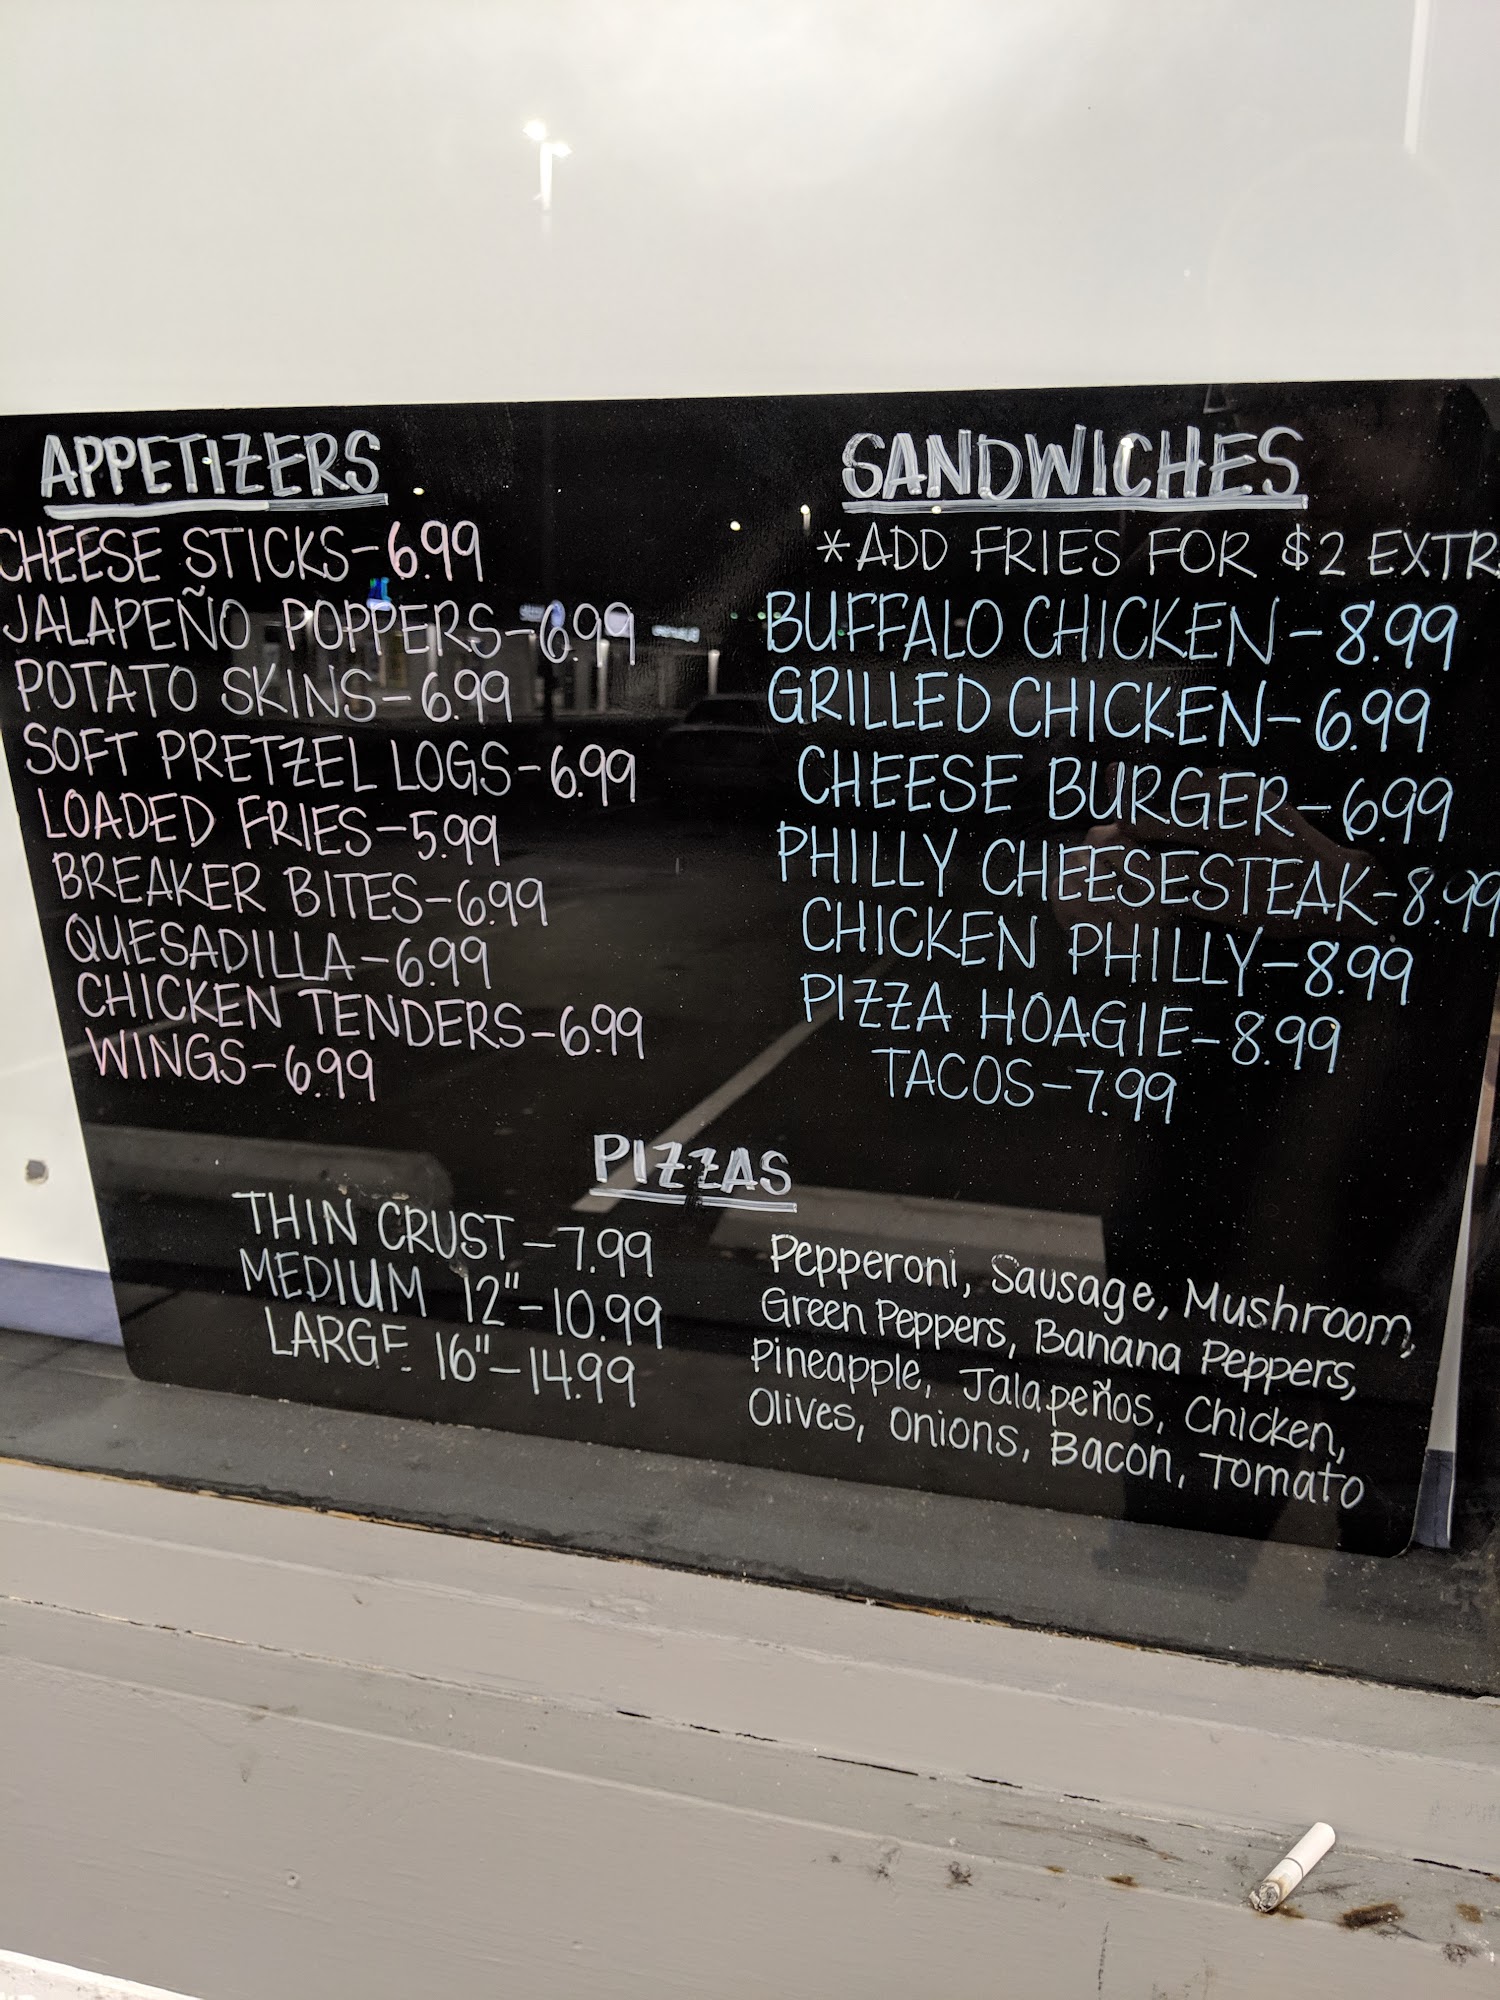 APPETIZERS
CHEESE STICKS-6.99
JALAPEÑO POPPERS-6.99
POTATO SKINS-6.99
SOFT PRETZEL LOGS-6.99
LOADED FRIES-5.99
BREAKER BITES-6.99
QUESADILLA-6.99
CHICKEN TENDERS-6.99
WINGS-6.99
SANDWICHES
*ADD FRIES FOR $2 EXTR
BUFFALO CHICKEN-8.99
GRILLED CHICKEN-6.99
CHEESE BURGER-6.99
PHILLY CHEESESTEAK-8.99
CHICKEN PHILLY-8.99
PIZZA HOAGIE-8.99
TACOS-7.99
PIZZAS
THIN CRUST-7.99
MEDIUM 12"-10.99
LARGE 16"-14.99
Pepperoni, Sausage, Mushroom,
Green Peppers, Banana Peppers,
Pineapple, Jalapeños, Chicken,
Olives, Onions, Bacon, Tomato